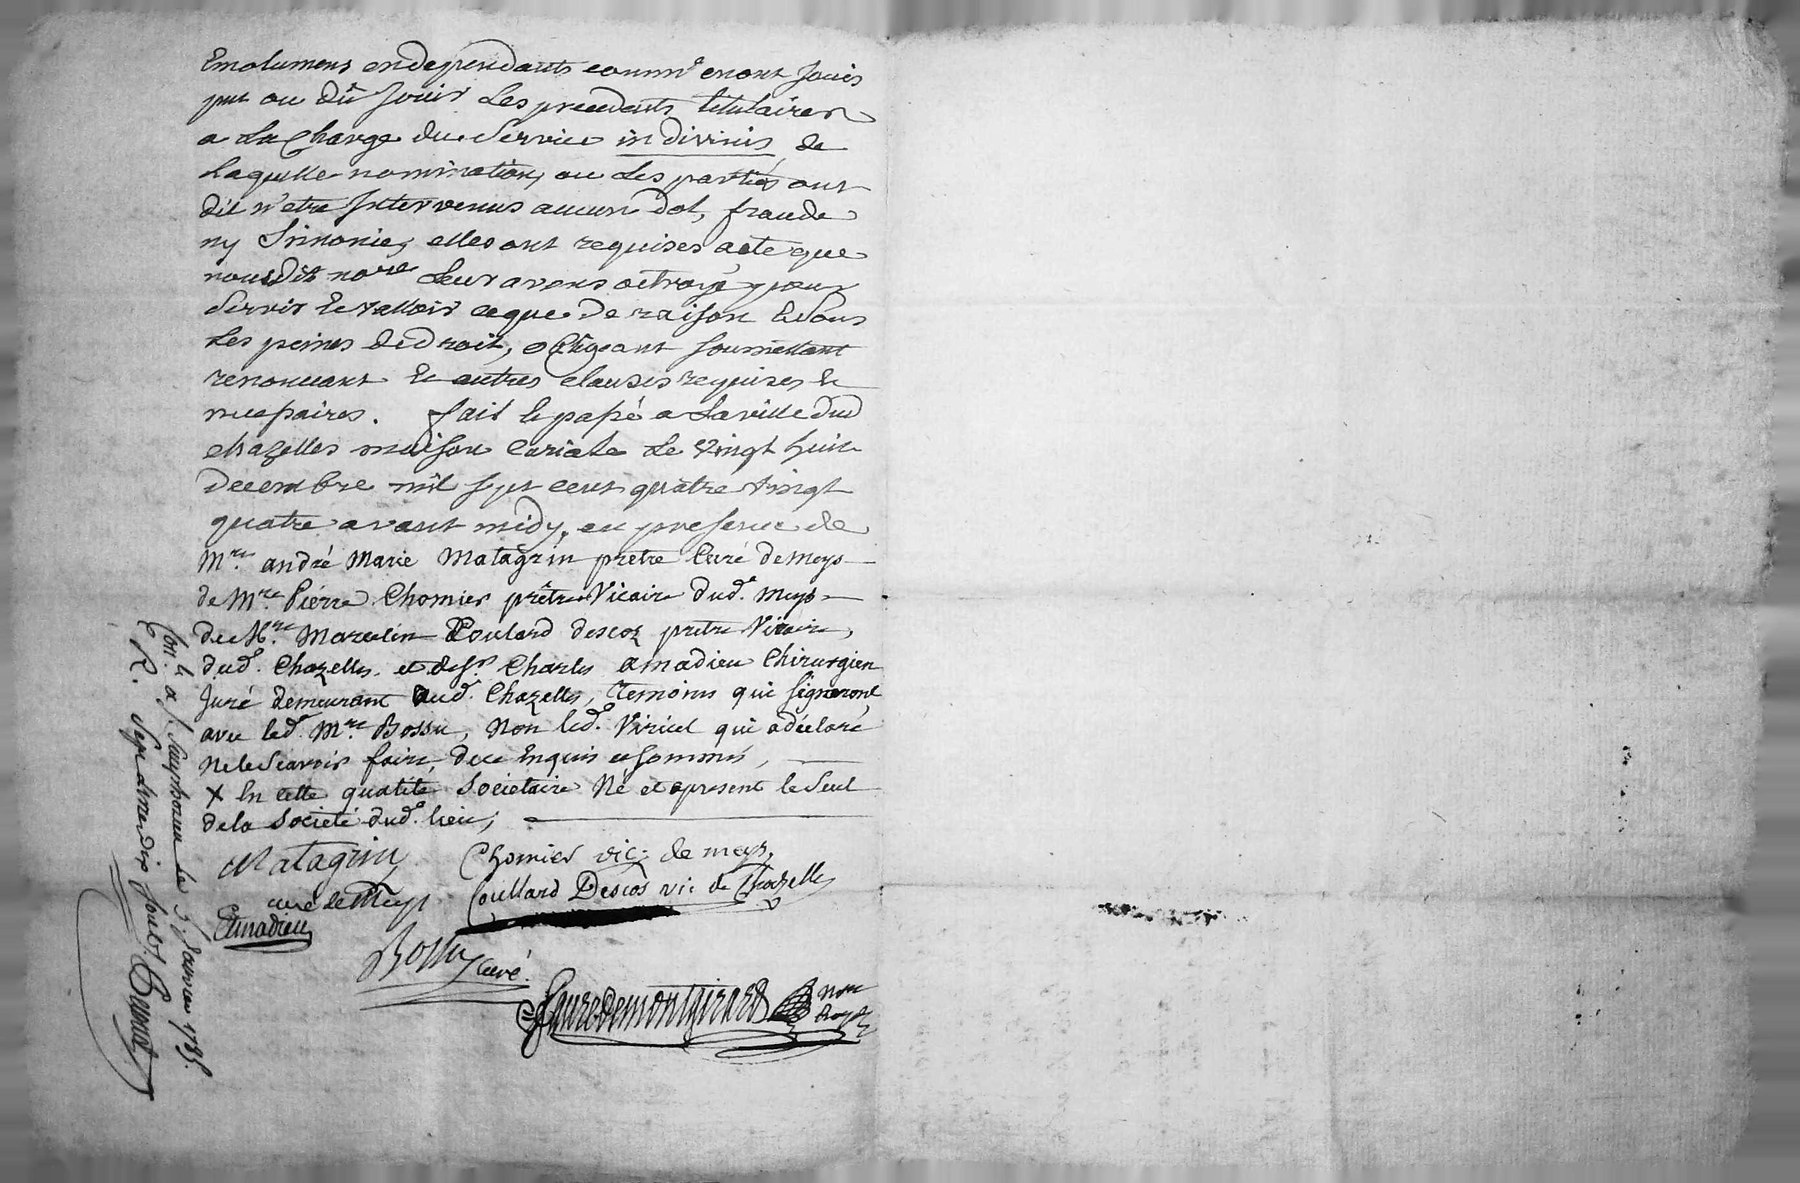 Emolumens endependants comm'e enont Jouis
put ou dû Jouir Les precedents titulaires
a La Charge du Service in divinis, de
Laquelle nomination, ou Les parties ont
dit n'etre Intervenus aucun dol, fraude
ny Simonie, elles ont requises acte que
nousdit no.re Leur avons octroyé pour
Servir Et valloir ceque de raison Et sous
Les peines de droit, obligeant soumettant
renoncant Et autres clauses requises Et
necessaires. fait Et passé a La ville dud
chazelles maison Curiale Le vingt huit
decembre mil sept cent quatre vingt
quatre avant midy, en presence de
M.re andré Marie Matagrin pretre Curé de Meys
de M.re Pierre Chomier prêtre Vicaire dud. Meys
de M.re Marcelin Coulard descoz pretre Vicaire,
dud. Chazelles, et de Sr. Charles amadieu Chirurgien
Juré demeurant aud. Chazelles, temoins qui signeront,
avec led. M.re Bossu, Non led. Viricel qui a déclaré
Ne le Scavoir faire, de ce Enquis et sommés,
X En cette qualité Societaire Né et apresent le Seul
de la Societé dud. lieu;
Matagrin
curé de Meys
Chomier vic: de meys,
Coullard Descos vic de Chazelles
Amadieu
Bossu curé.
Faure de montgirard no.re royal
Con. le a St. Simphorien le 3 Janvier 1785.
R. sept livres dix sols.